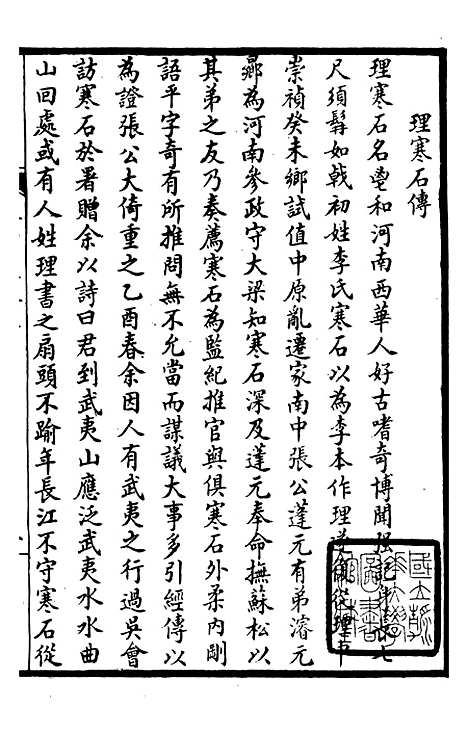 理寒石傳
理寒石名鬯和河南西華人好古嗜奇博聞强記身長七
尺須髯如戟初姓李氏寒石以為李本作理遂復從理中
崇禎癸未鄉試值中原亂遷家南中張公蓬元有弟濬元
鄉為河南參政守大梁知寒石深及蓬元奉命撫蘇松以
其弟之友乃奏薦寒石為監紀推官與俱寒石外柔內剛
語平字奇有所推問無不允當而謀議大事多引經傳以
為證張公大倚重之乙酉春余因人有武夷之行過吳會
訪寒石於署贈余以詩曰君到武夷山應泛武夷水水曲
山回處或有人姓理書之扇頭不踰年長江不守寒石從